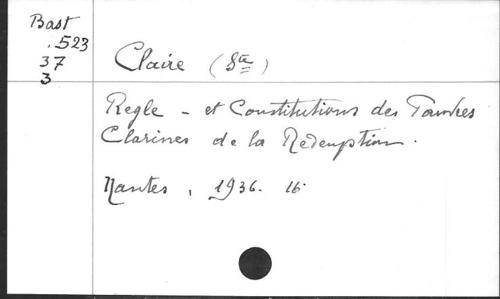 Bast
.523
37
3
Claire (Ste)
Regle - et Constitutions des Pauvres
Clarisses de la Rédemption.
Nantes, 1936. 16°